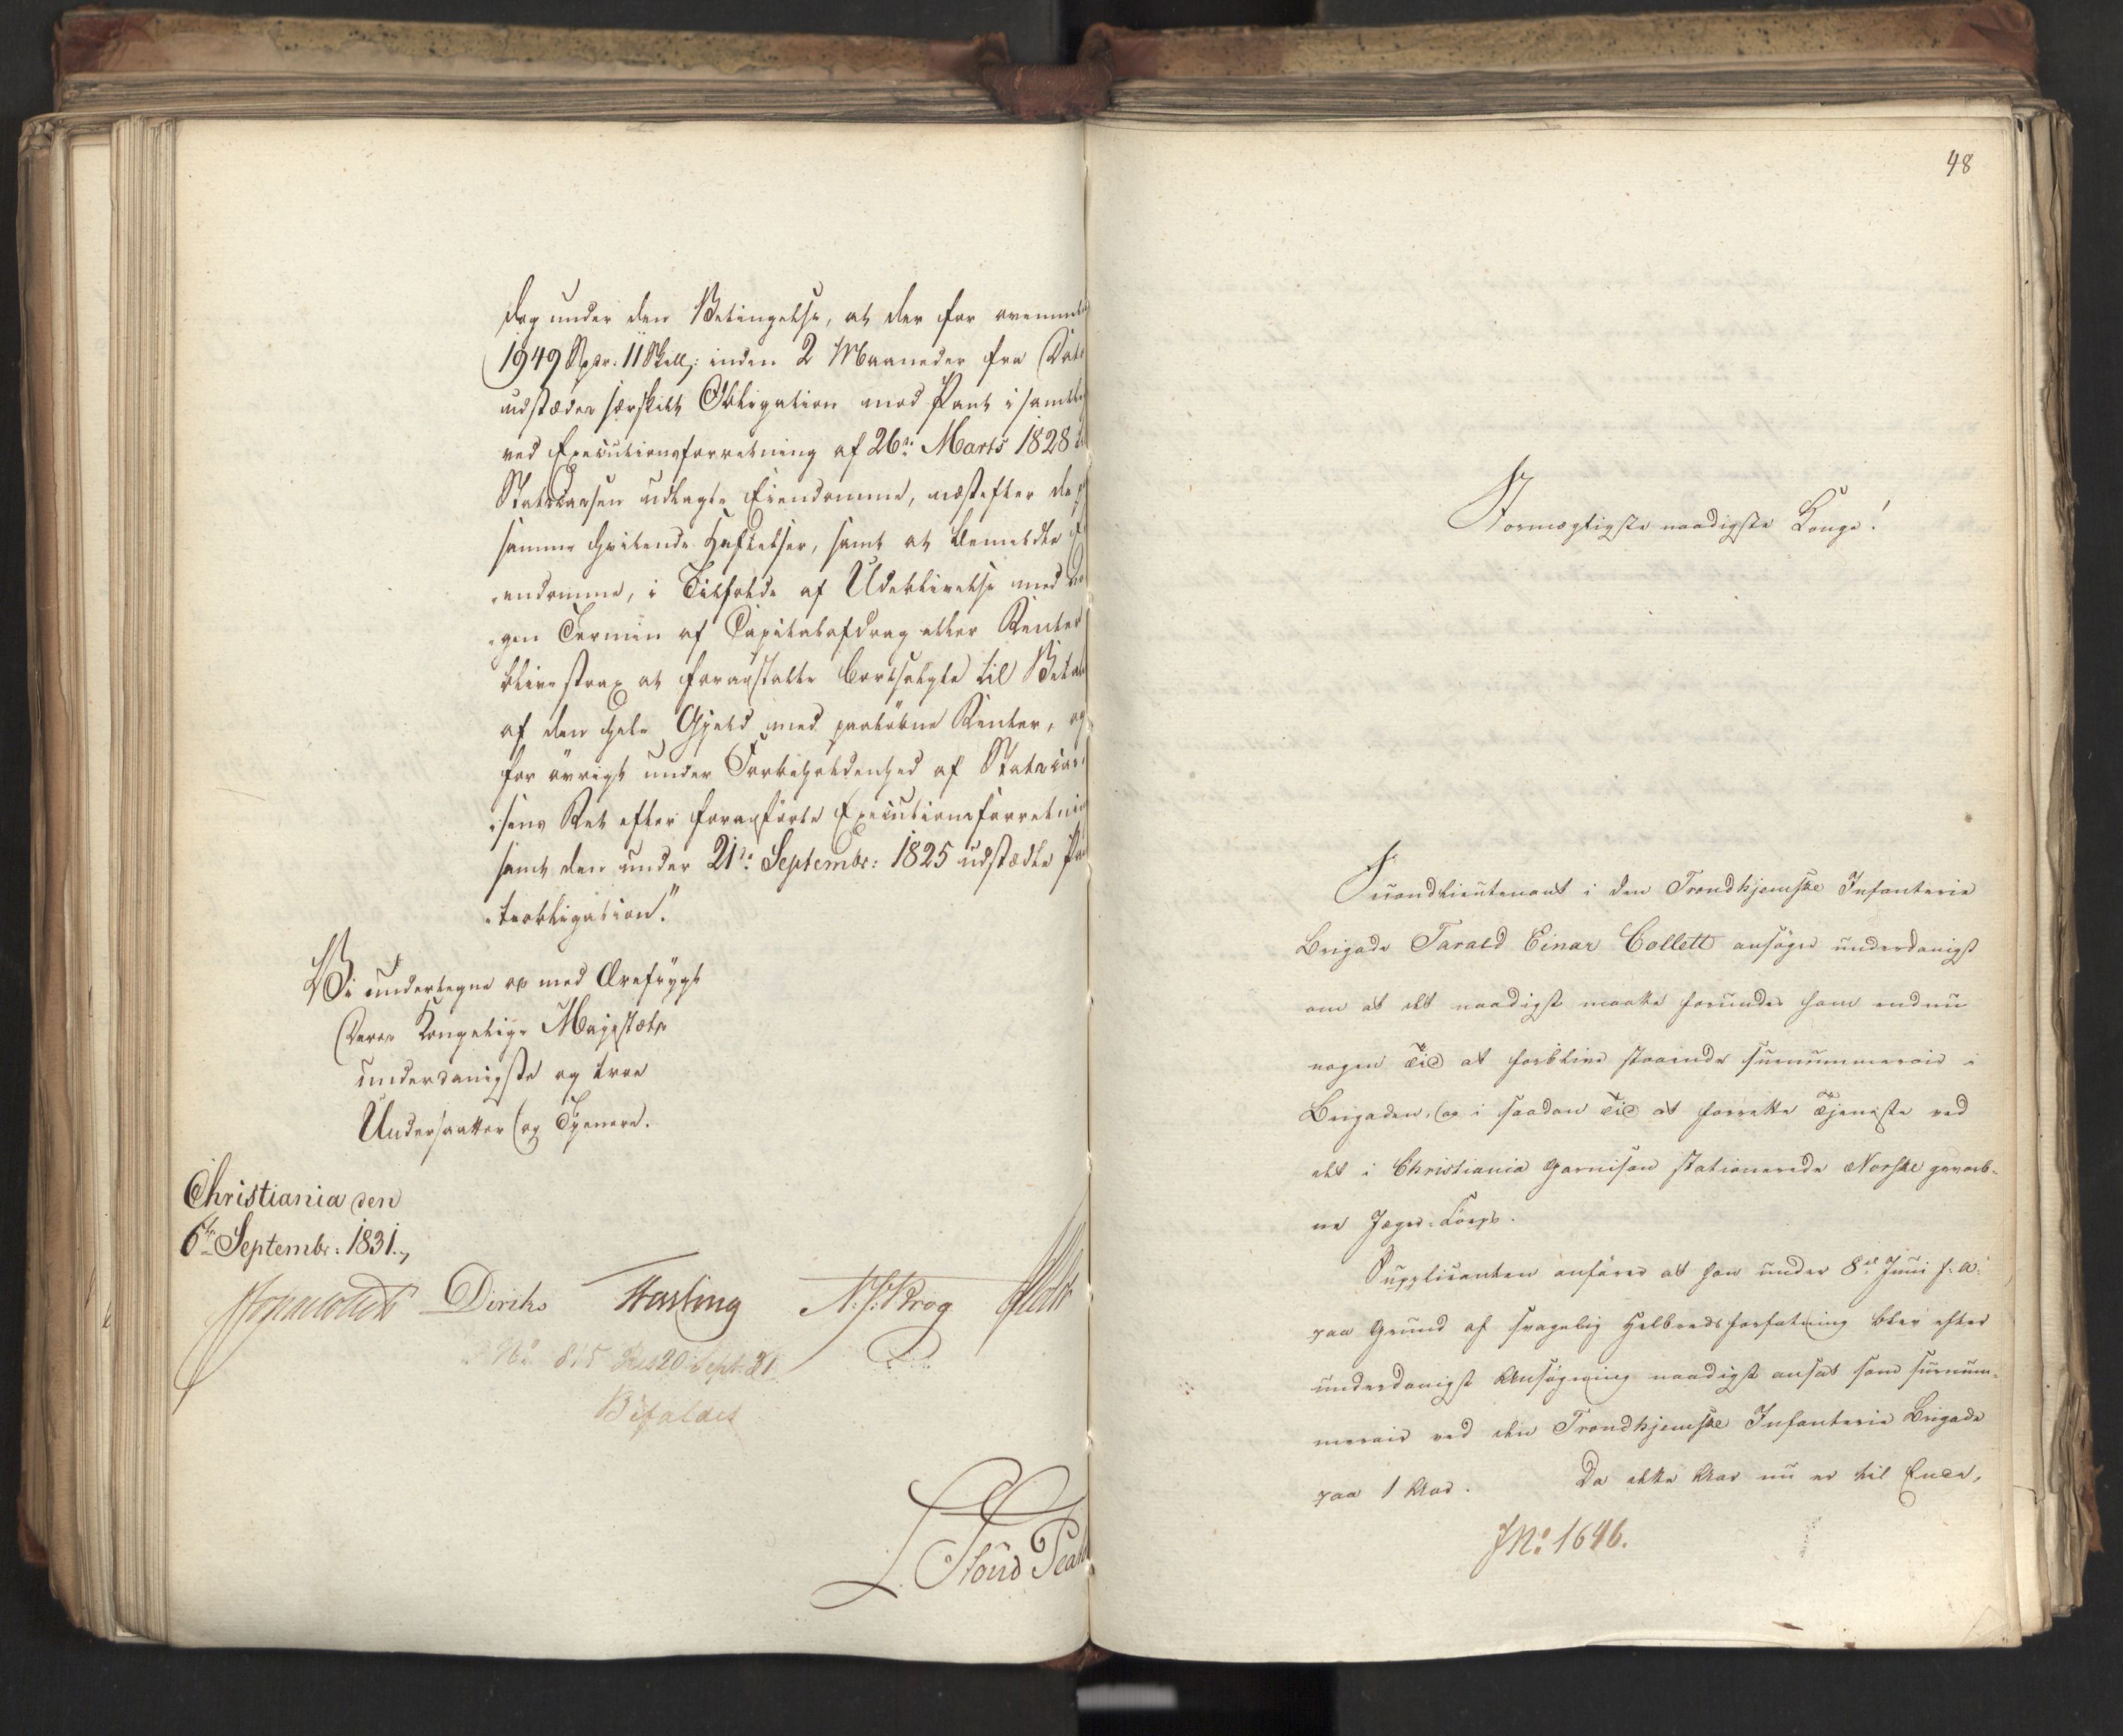 dog under den Betingelse, at der for ovennævnte
1949 Spdr. 11 Skill: inden 2 Maaneder fra Dato
udstædes særskilt Obligation med Pant i samtlige
ved Executionsforretning af 26de Marts 1828
Statskassen udlagte Eiendomme, næstefter de
samme hvilende Heftelser, samt at bemeldte
endomme, i Tilfælde af Udeblivelse med
gen Termin af Capitalafdrag eller Renter
blive strax at foranstalte bortsolgte til
af den hele Gjeld med paaløbne Renter, og
for övrigt under Forbeholdenhed af Statscas-
sens Ret efter foranførte Executionsforretning
samt den under 21de Septembr: 1825 udstædte
teobligation."
Vi undertegne os med Ærefrygt
Deres Kongelige Majestæts
underdanigste og troe
Undersaatter og Tjenere.
Christiania den
6te Septembr: 1831.
Diriks Fasting N. J. Krog
No 815 Res 20 Sept. 31
Bifaldet
48
Stormægtigste naadigste Konge!
Secondlieutenant i den Trondhjemske Infanterie
Brigade Tarald Einar Collett ansöger underdanigst
om at det naadigst maatte forundes ham endnu
nogen Tid at forblive staaende surnummerair i
Brigaden, og i saadan Tid at forrette Tjeneste ved
det i Christiania Garnison stationerede Norske gevorb-
ne Jæger-Corps.
Supplicanten anförer at han under 8de Juni f. A.
paa Grund af svagelig Helbredsforfatning blev efter
underdanigst Ansögning naadigst ansat som surnum-
merair ved den Trondhjemske Infanterie Brigade
paa 1 Aar. Da dette Aar nu er til Ende,
JNo: 1646.